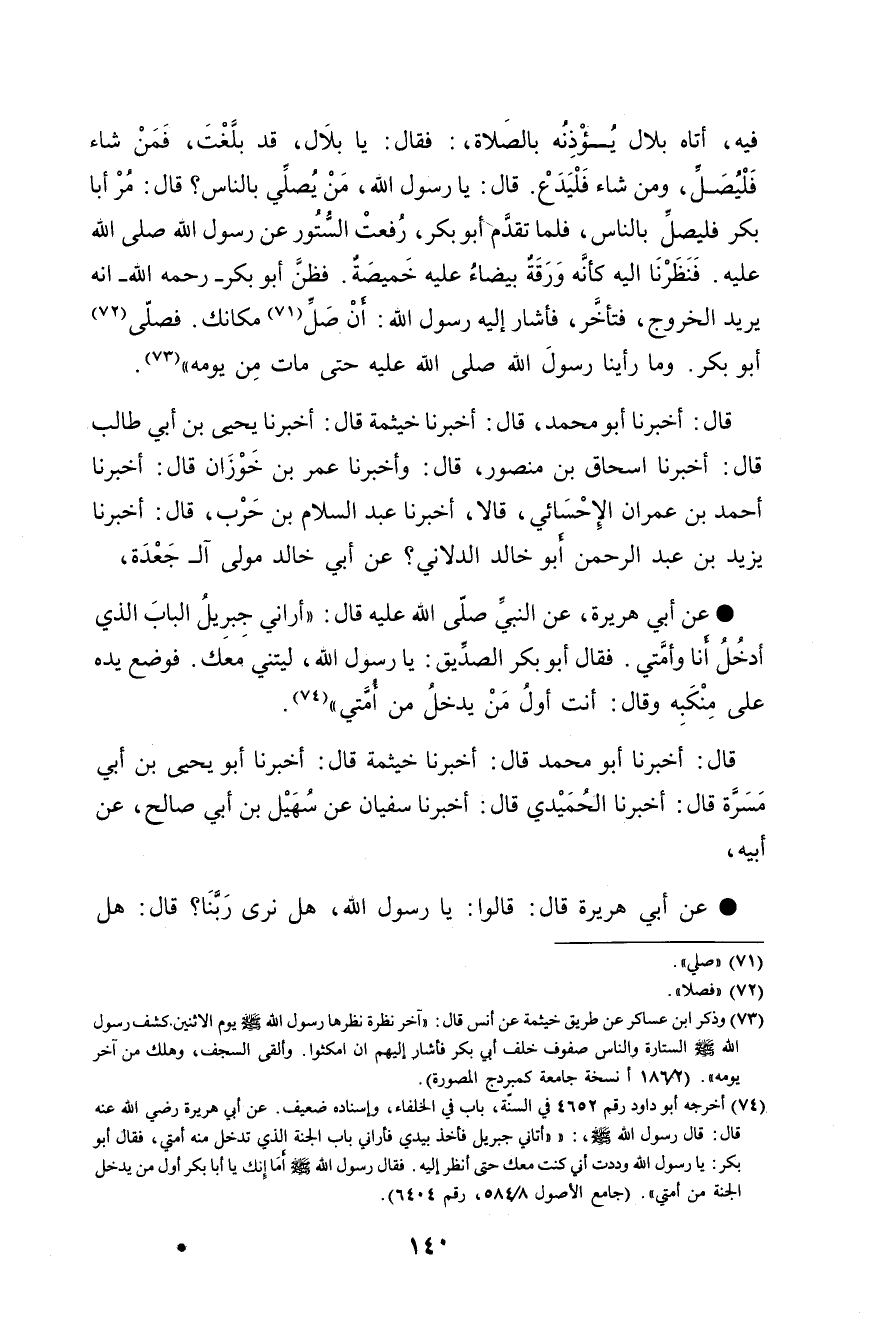 فيه، أتاه بلال يُــؤْذِنُه بالصَلاة،: فقال: يا بلَال، قد بلَّغْتَ، فَمَنْ شاء
فَلْيُصَــلِّ، ومن شاء فَلْيَدَعْ. قال: يا رسول الله، مَنْ يُصلِّي بالناس؟ قال: مُرْ أبا
بكر فليصلِّ بالناس، فلما تقدَّم أبو بكر، رُفعتْ السُّتُور عن رسول الله صلى الله
عليه. فَنَظَرْنَا اليه كأنَّه وَرَقَةٌ بيضاءُ عليه خَميصَةٌ. فظنَّ أبو بكر ـ رحمه الله ـ انه
يريد الخروج، فتأخَّر، فأشار إليه رسول الله: أَنْ صَلِّ(٧١) مكانك. فصلّى(٧٢)
أبو بكر. وما رأينا رسولَ الله صلى الله عليه حتى مات مِن يومه»(٧٣).
قال: أخبرنا أبو محمد، قال: أخبرنا خيثمة قال: أخبرنا يحيى بن أبي طالب
قال: أخبرنا اسحاق بن منصور، قال: وأخبرنا عمر بن خَوْزَان قال: أخبرنا
أحمد بن عمران الإِحْسَائي، قالا، أخبرنا عبد السلام بن حَرْب، قال: أخبرنا
يزيد بن عبد الرحمن أَبو خالد الدلاني؟ عن أبي خالد مولى آلـ جَعْدَة،
● عن أبي هريرة، عن النبيِّ صلّى الله عليه قال: «أراني جِبرِيلُ البابَ الذي
أدخُلُ أَنا وأمَّتي. فقال أبو بكر الصدِّيق: يا رسول الله، ليتني معك. فوضع يده
على مِنْكَبِه وقال: أنت أولُ مَنْ يدخلُ من أُمَّتي»(٧٤).
قال: أخبرنا أبو محمد قال: أخبرنا خيثمة قال: أخبرنا أبو يحيى بن أبي
مَسَرَّة قال: أخبرنا الحُمَيْدي قال: أخبرنا سفيان عن سُهَيْل بن أبي صالح، عن
أبيه،
● عن أبي هريرة قال: قالوا: يا رسول الله، هل نرى رَبَّنَا؟ قال: هل
(٧١) «صلي».
(٧٢) «فصلا».
(٧٣) وذكر ابن عساكر عن طريق خيثمة عن أنس قال: «آخر نظرة نظرها رسول الله ﷺ يوم الاثنين. كشف رسول
الله ﷺ الستارة والناس صفوف خلف أبي بكر فأشار إليهم ان امكثوا. وألقى السجف، وهلك من آخر
يومه». (١٨٦/٢ أ نسخة جامعة كمبردج المصورة).
(٧٤) أخرجه أبو داود رقم ٤٦٥٢ في السنّة، باب في الخلفاء، وإسناده ضعيف. عن أبي هريرة رضي الله عنه
قال: قال رسول الله ﷺ،: « «أتاني جبريل فأخذ بيدي فأراني باب الجنة الذي تدخل منه أمتي، فقال أبو
بكر: يا رسول الله وددت أني كنت معك حتى أنظر إليه. فقال رسول الله ﷺ أَمَا إنك يا أبا بكر أول من يدخل
الجنة من أمتي». (جامع الأصول ٥٨٤/٨، رقم ٦٤٠٤).
١٤٠